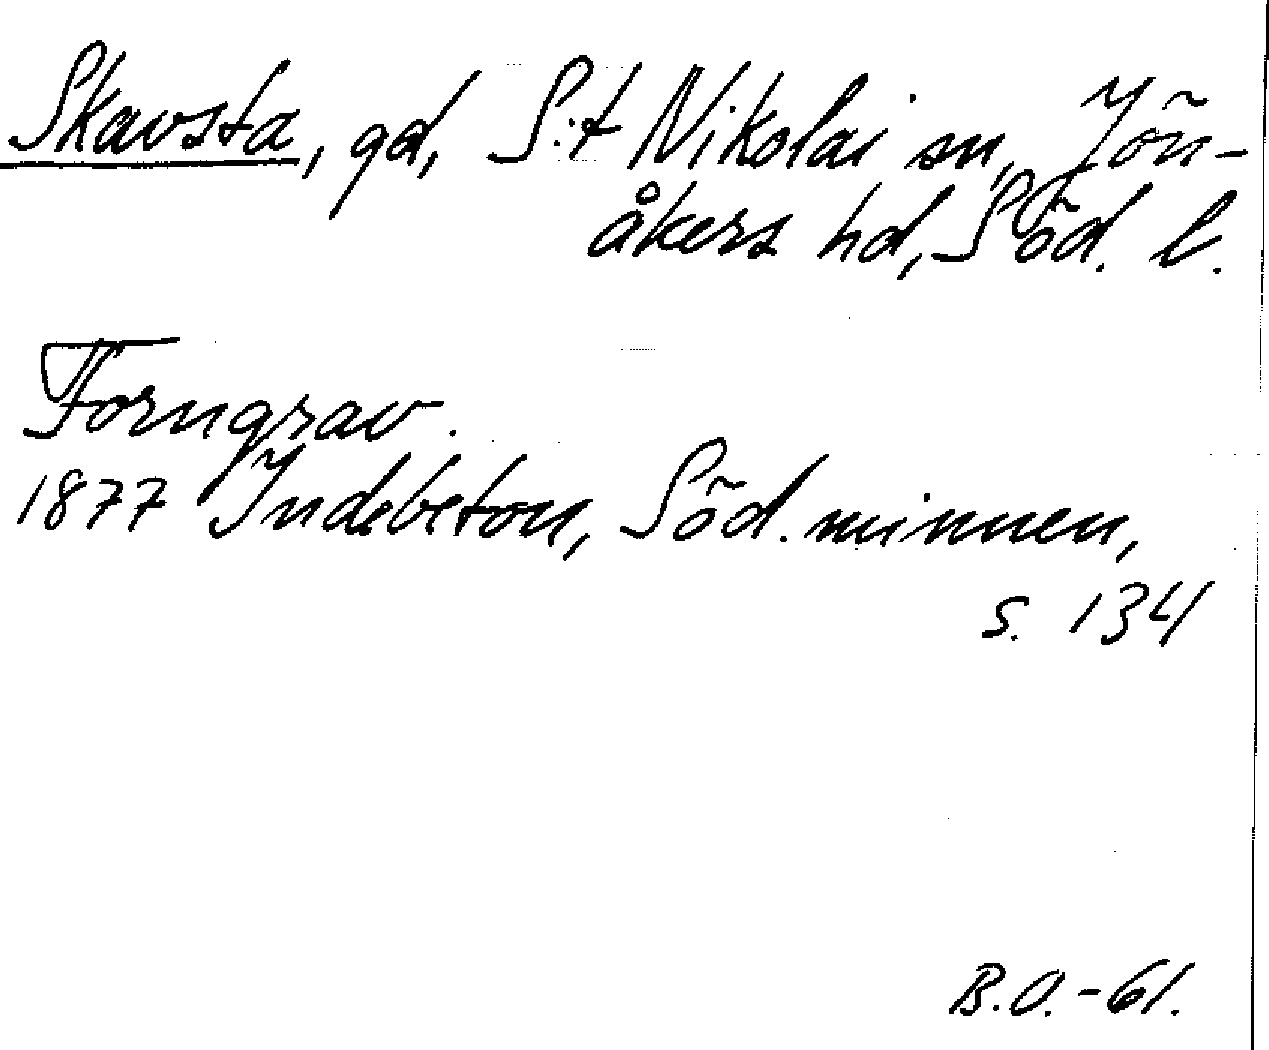 Skavsta, gd, S:t Nikolai sn, Jön-
åkers hd, Söd. l.
Forngrav.
1877 Indebetou, Söd. minnen,
s. 134
B.O.-61.